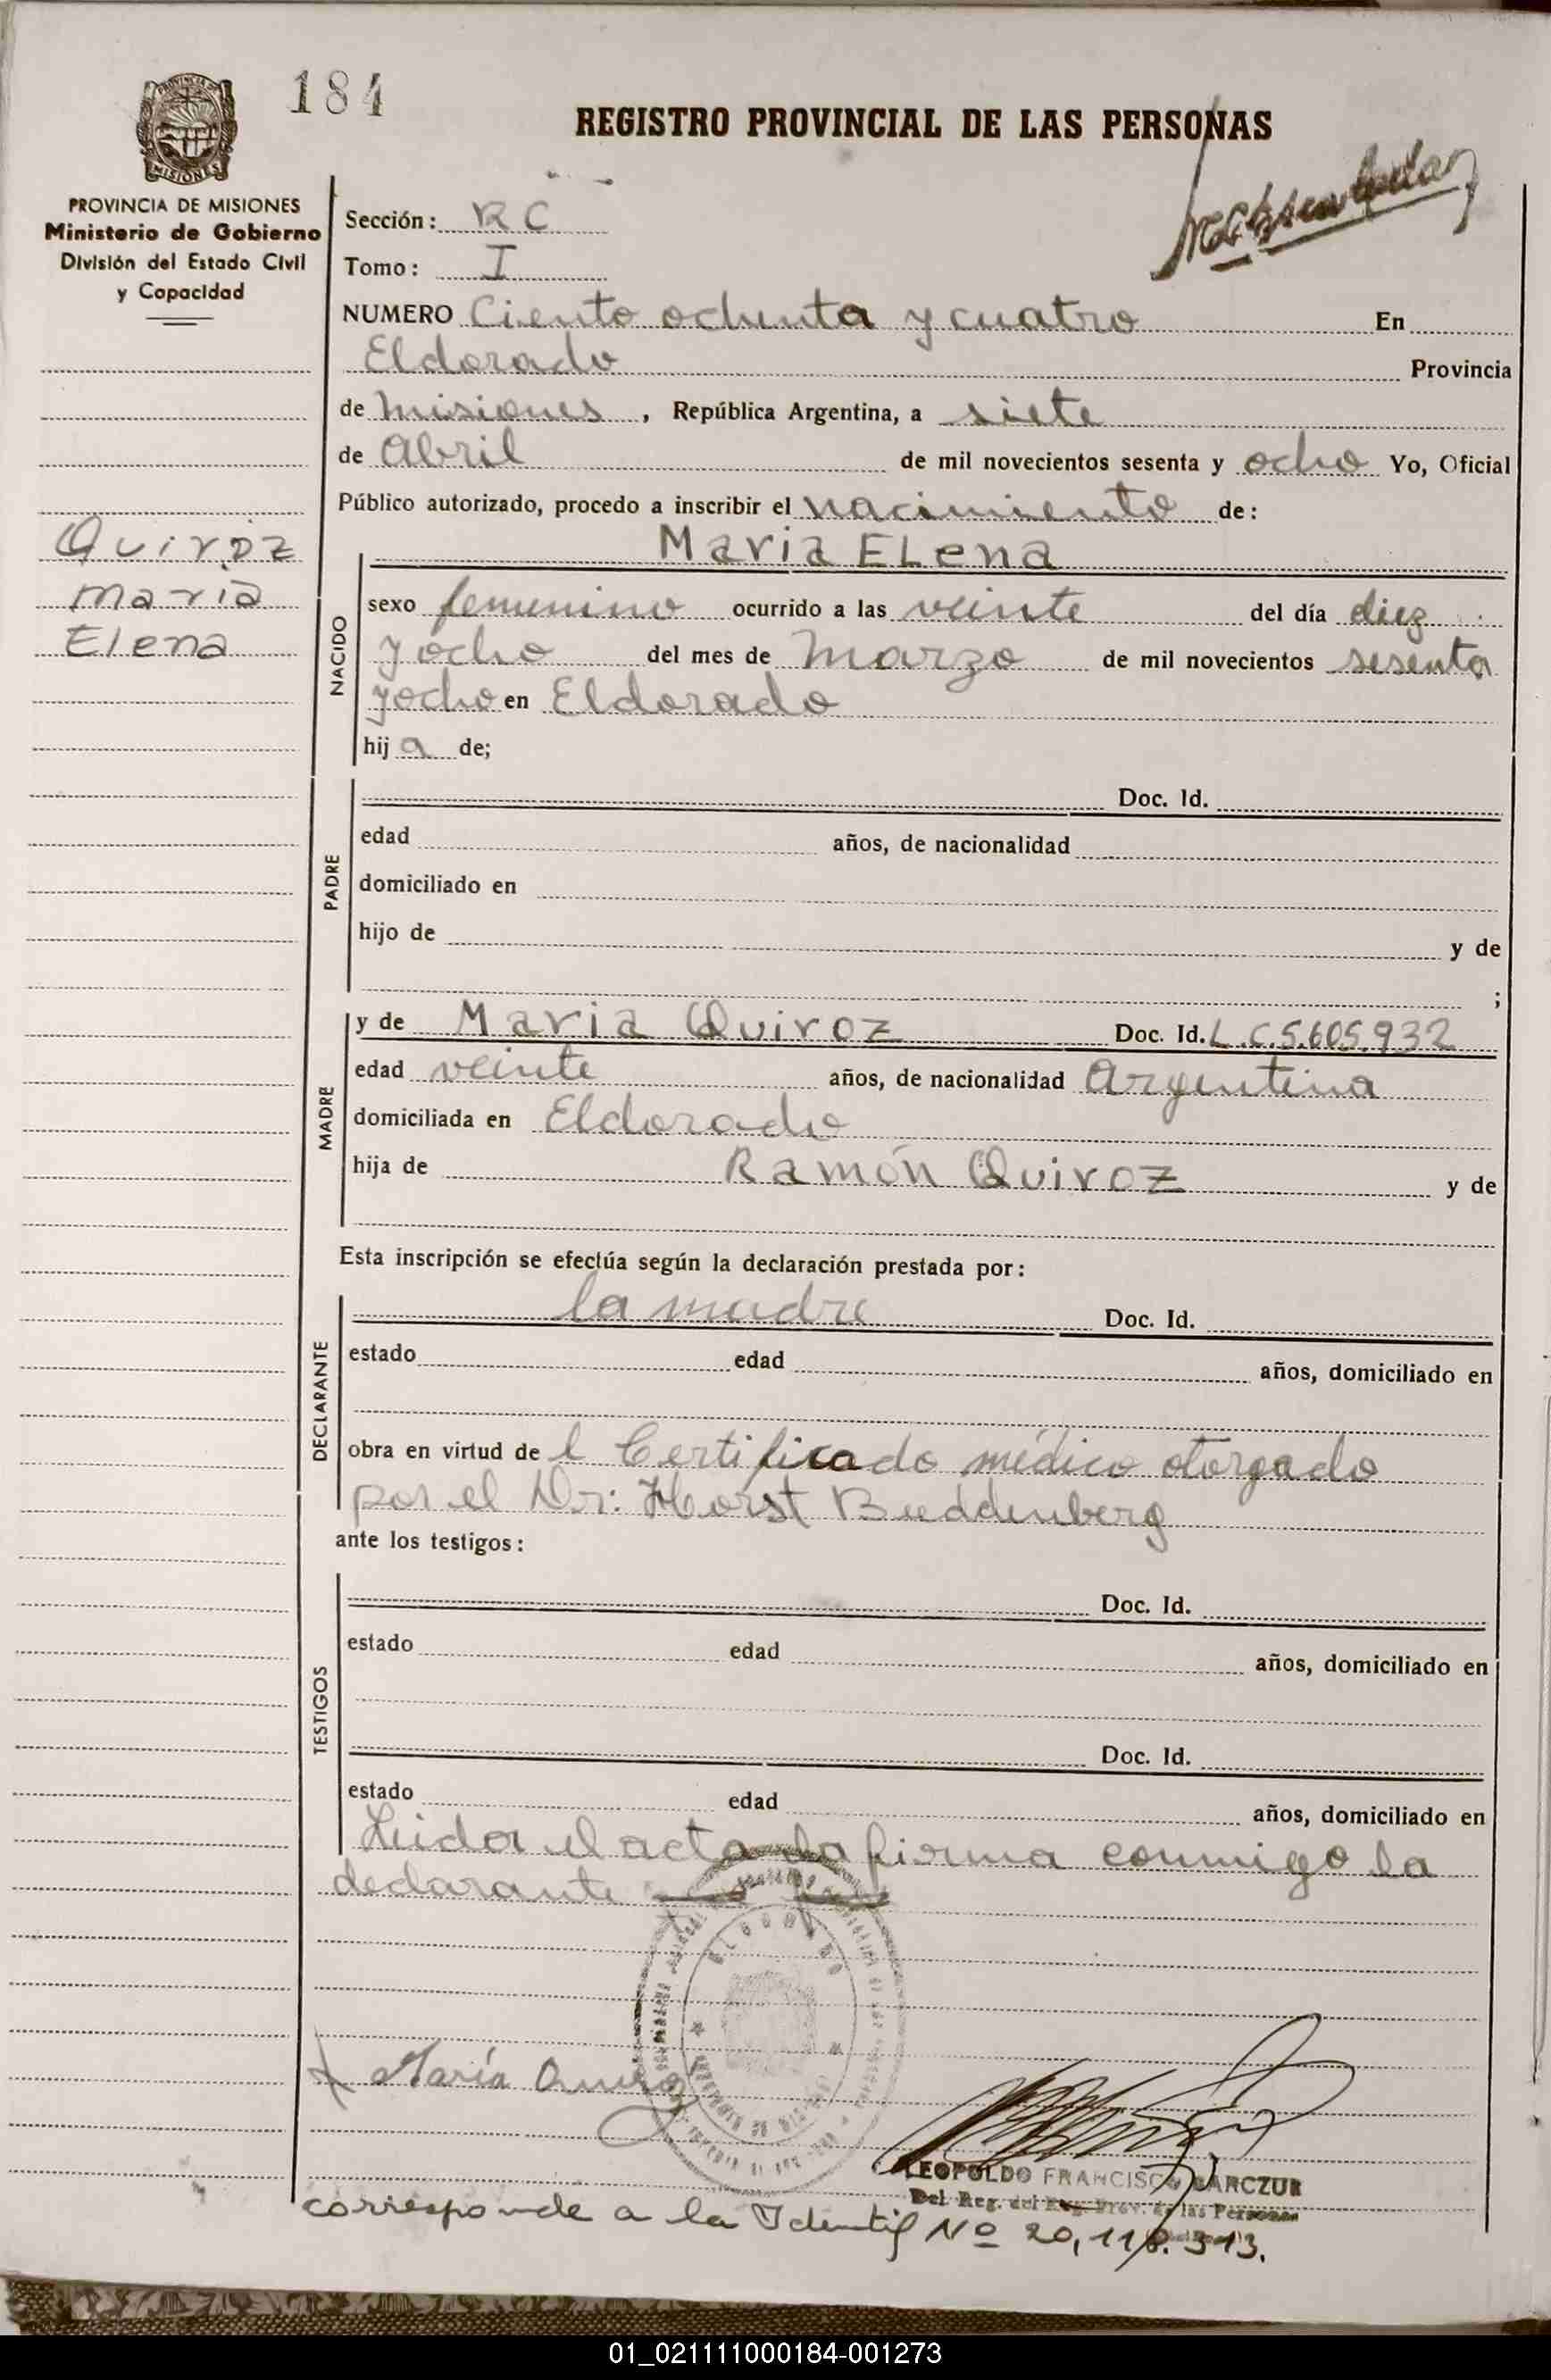 184
REGISTRO PROVINCIAL DE LAS PERSONAS
PROVINCIA DE MISIONES
Ministerio de Gobierno
División del Estado Civil
y Capacidad
Sección: RC
Tomo: I
NUMERO Ciento ochenta y cuatro En
Eldorado Provincia
de misiones, República Argentina, a siete
de Abril de mil novecientos sesenta y ocho Yo, Oficial
Público autorizado, procedo a inscribir el nacimiento de:
Quiroz
maria
Elena
Maria ELena
NACIDO
sexo femenino ocurrido a las veinte del día diez
y ocho del mes de Marzo de mil novecientos sesenta
y ocho en Eldorado
hij a de;
PADRE
Doc. Id.
edad años, de nacionalidad
domiciliado en
hijo de y de
;
MADRE
y de Maria Quiroz Doc. Id. L.C.5.605.932
edad veinte años, de nacionalidad Argentina
domiciliada en Eldorado
hija de Ramón Quiroz y de
Esta inscripción se efectúa según la declaración prestada por:
DECLARANTE
la madre Doc. Id.
estado edad años, domiciliado en
obra en virtud de l Certificado médico otorgado
por el Dr: Horst Buddenberg
ante los testigos:
TESTIGOS
Doc. Id.
estado edad años, domiciliado en
Doc. Id.
estado edad años, domiciliado en
Leida el acta la firma conmigo la
declarante
ELDORADO
María Quiroz
LEOPOLDO FRANCISCO
Del Reg. del Prov. de las Personas
corresponde a la Identif Nº 20,118.313.
01_021111000184-001273